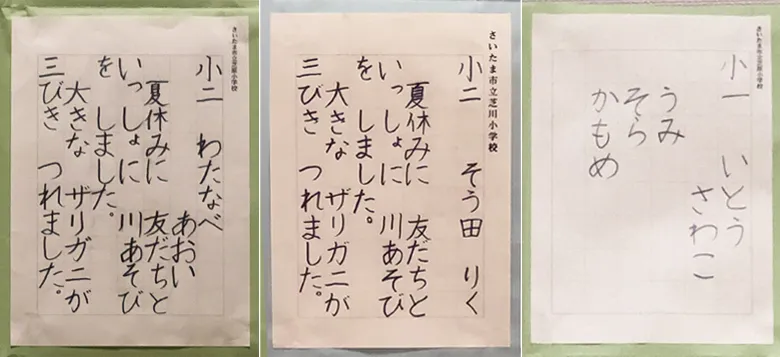 さいたま市立芝原小学校
小二 わたなべ
あおい
夏休みに 友だちと
いっしょに 川あそび
を しました。
大きな ザリガニが
三びき つれました。
さいたま市立芝川小学校
小二 そう田 りく
夏休みに 友だちと
いっしょに 川あそび
を しました。
大きな ザリガニが
三びき つれました。
小一 いとう
さわこ
うみ
そら
かもめ